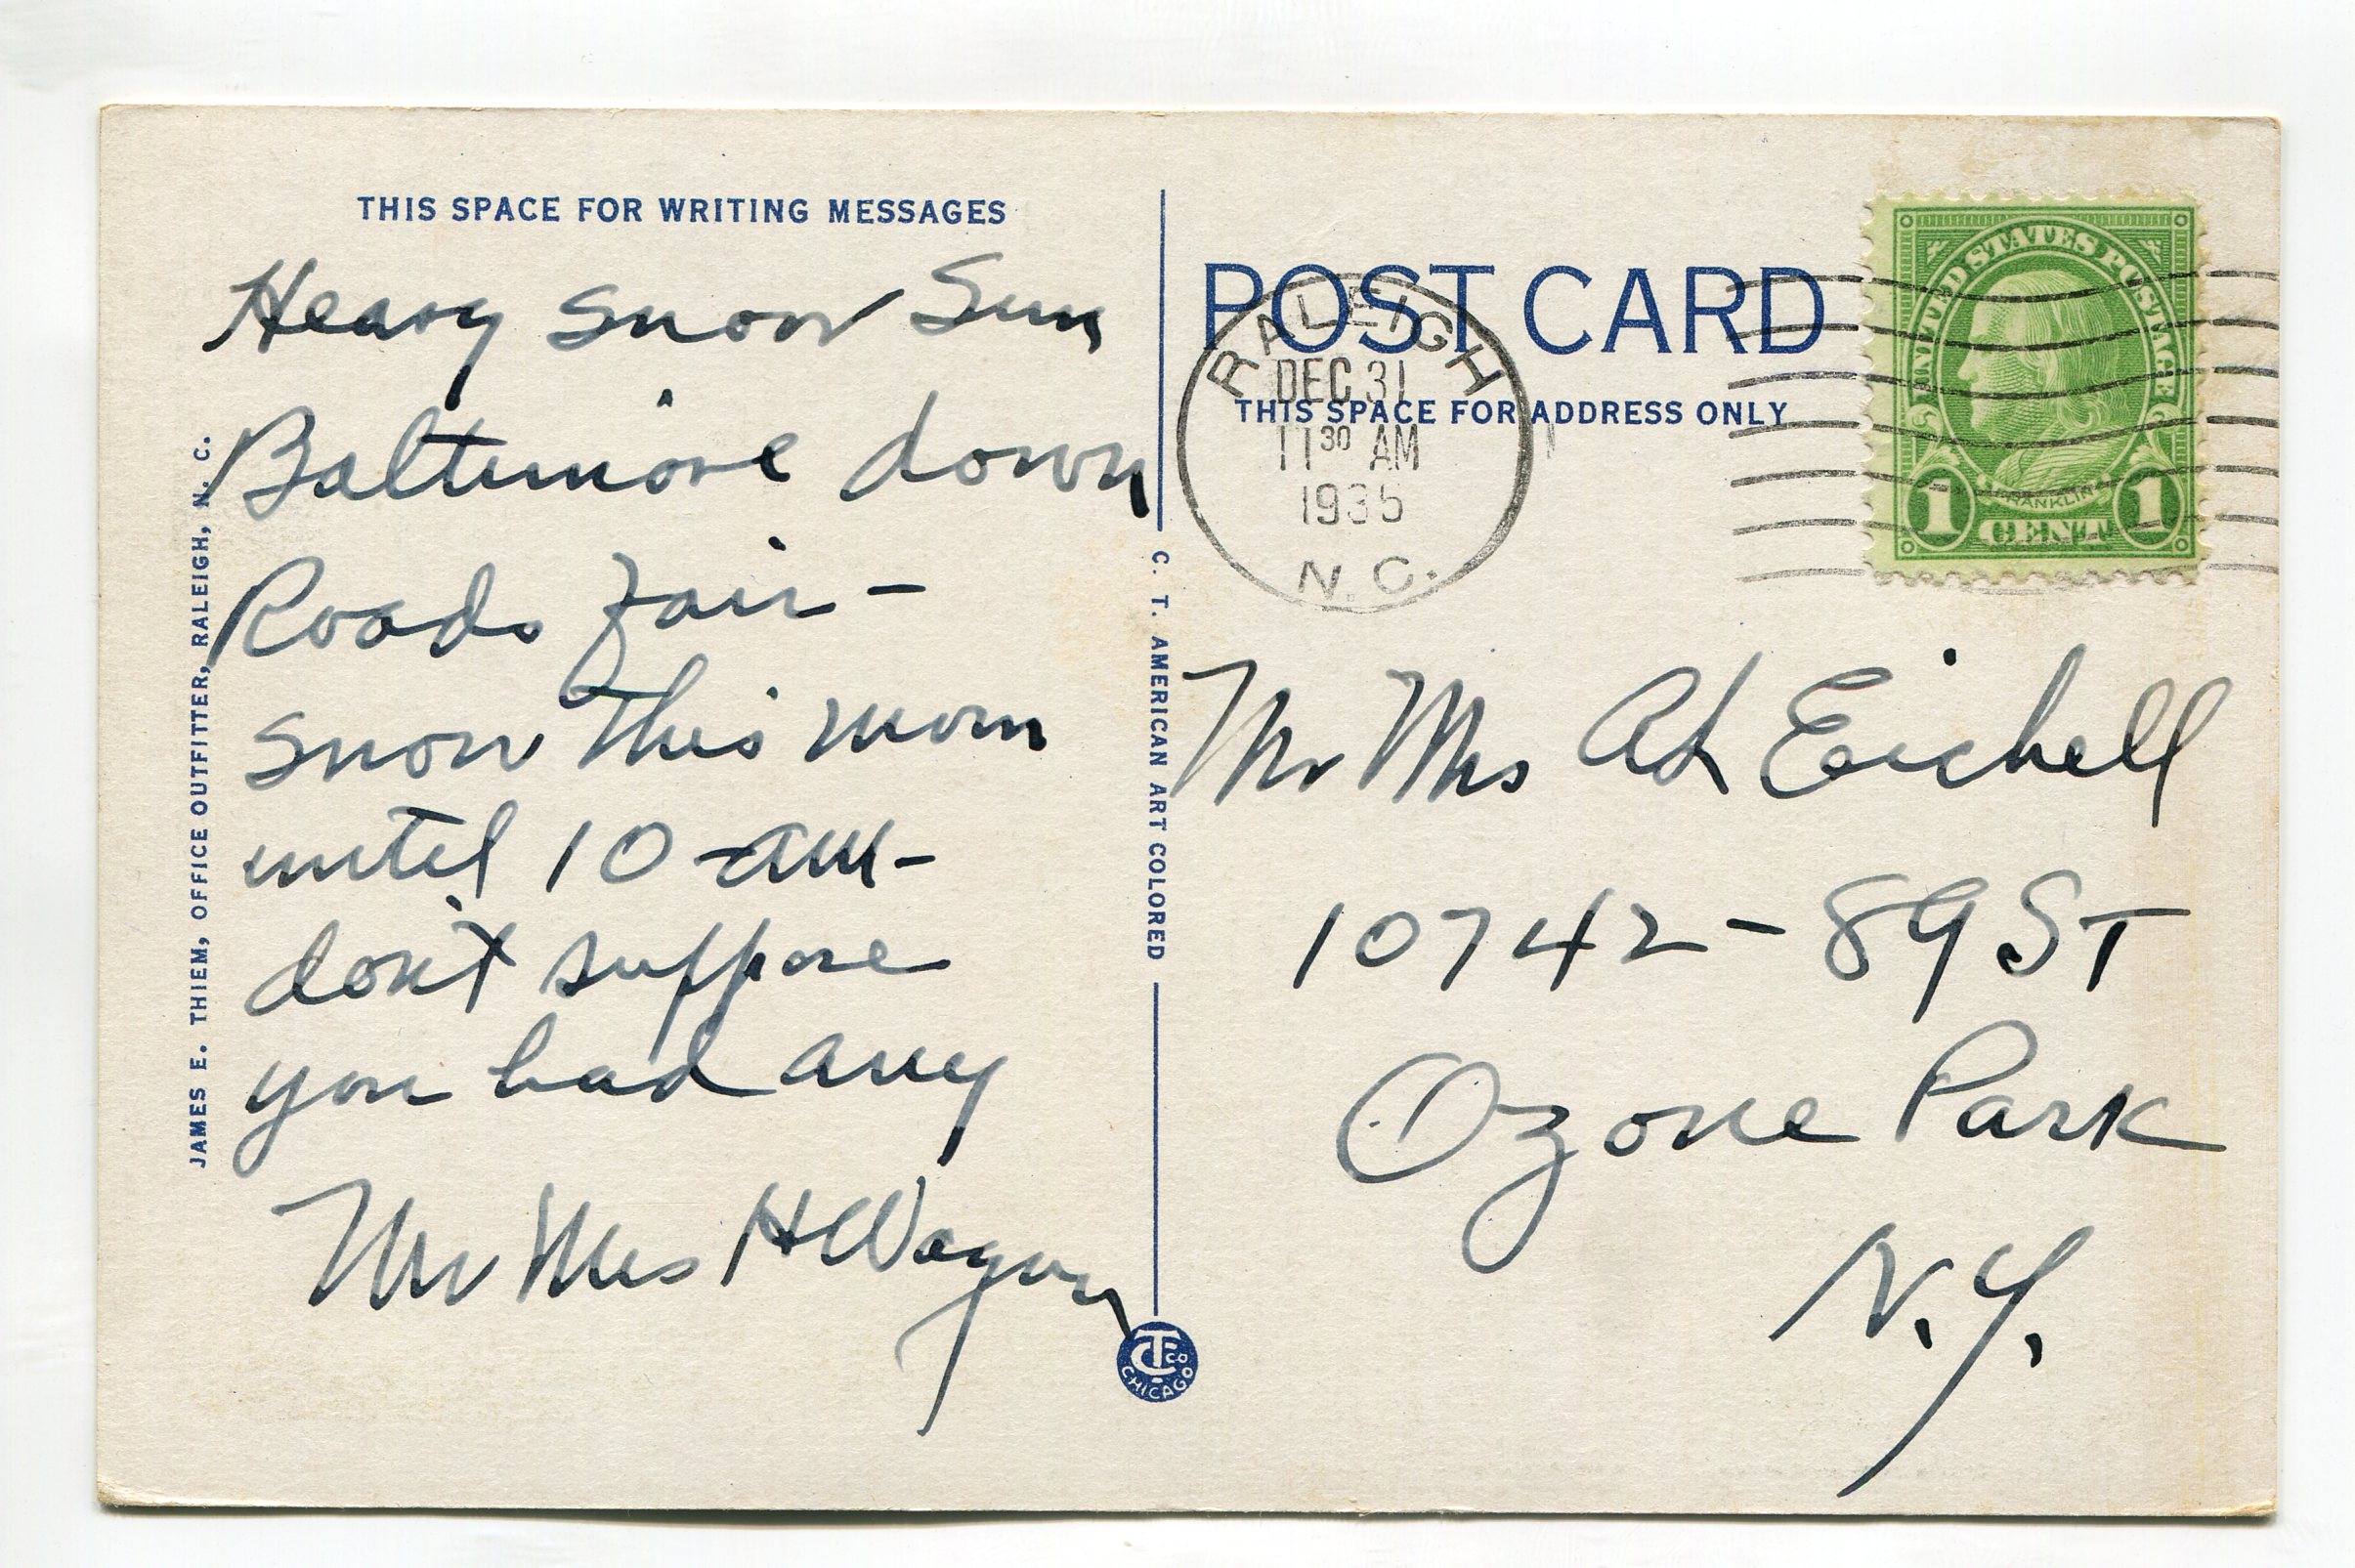 THIS SPACE FOR WRITING MESSAGES
Heavy snow Sun
Baltimore down
Roads fair –
snow this morn
until 10 am –
don't suppose
you had any
Mr Mrs H Wagon
JAMES E. THIEM, OFFICE OUTFITTER, RALEIGH, N. C.
C. T. AMERICAN ART COLORED
CT CO
CHICAGO
POST CARD
THIS SPACE FOR ADDRESS ONLY
RALEIGH
DEC 31
11 30 AM
1935
N. C.
UNITED STATES POSTAGE
FRANKLIN
1 CENT 1
Mr Mrs Ad Eichell
10742 – 89 ST
Ozone Park
N.Y.